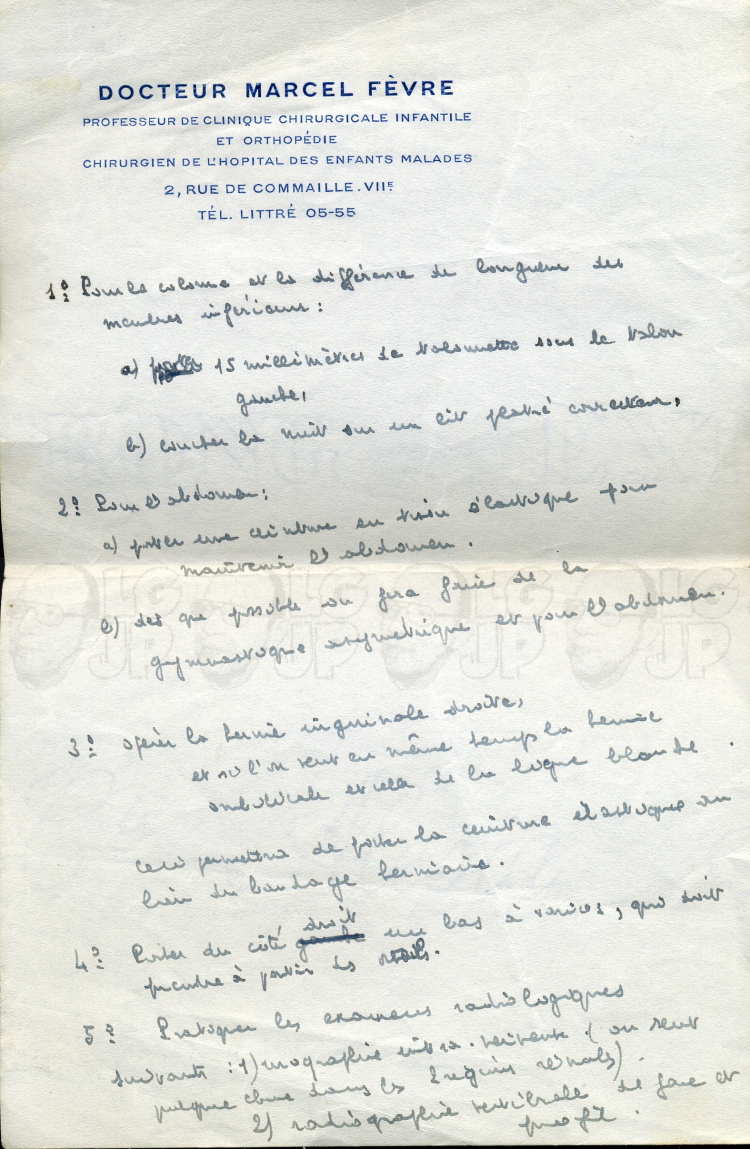 DOCTEUR MARCEL FÈVRE
PROFESSEUR DE CLINIQUE CHIRURGICALE INFANTILE
ET ORTHOPÉDIE
CHIRURGIEN DE L'HOPITAL DES ENFANTS MALADES
2, RUE DE COMMAILLE. VIIE
TÉL. LITTRÉ 05-55
1º Pour la colonne et la différence de longueur des
membres inférieurs :
a) 15 millimètres de talonnette sous le talon
gauche,
b) coucher la nuit sur un lit plâtré correcteur,
2º Pour l'abdomen :
a) porter une ceinture en tissu élastique pour
maintenir l'abdomen.
b) dès que possible on fera faire de la
gymnastique asymétrique et pour l'abdomen.
3º opérer la hernie inguinale droite,
et si l'on veut en même temps la hernie
ombilicale et celle de la ligne blanche.
Ceci permettra de porter la ceinture élastique au
lieu du bandage herniaire.
4º Porter du côté droit un bas à varices, qui doit
prendre à partir des
5º Pratiquer les examens radiologiques
suivants : 1) urographie intra-veineuse (on sent
quelque chose dans les 2 régions rénales).
2) radiographie vertébrale de face et
profil.
LG
JP
LG
JP
LG
JP
LG
JP